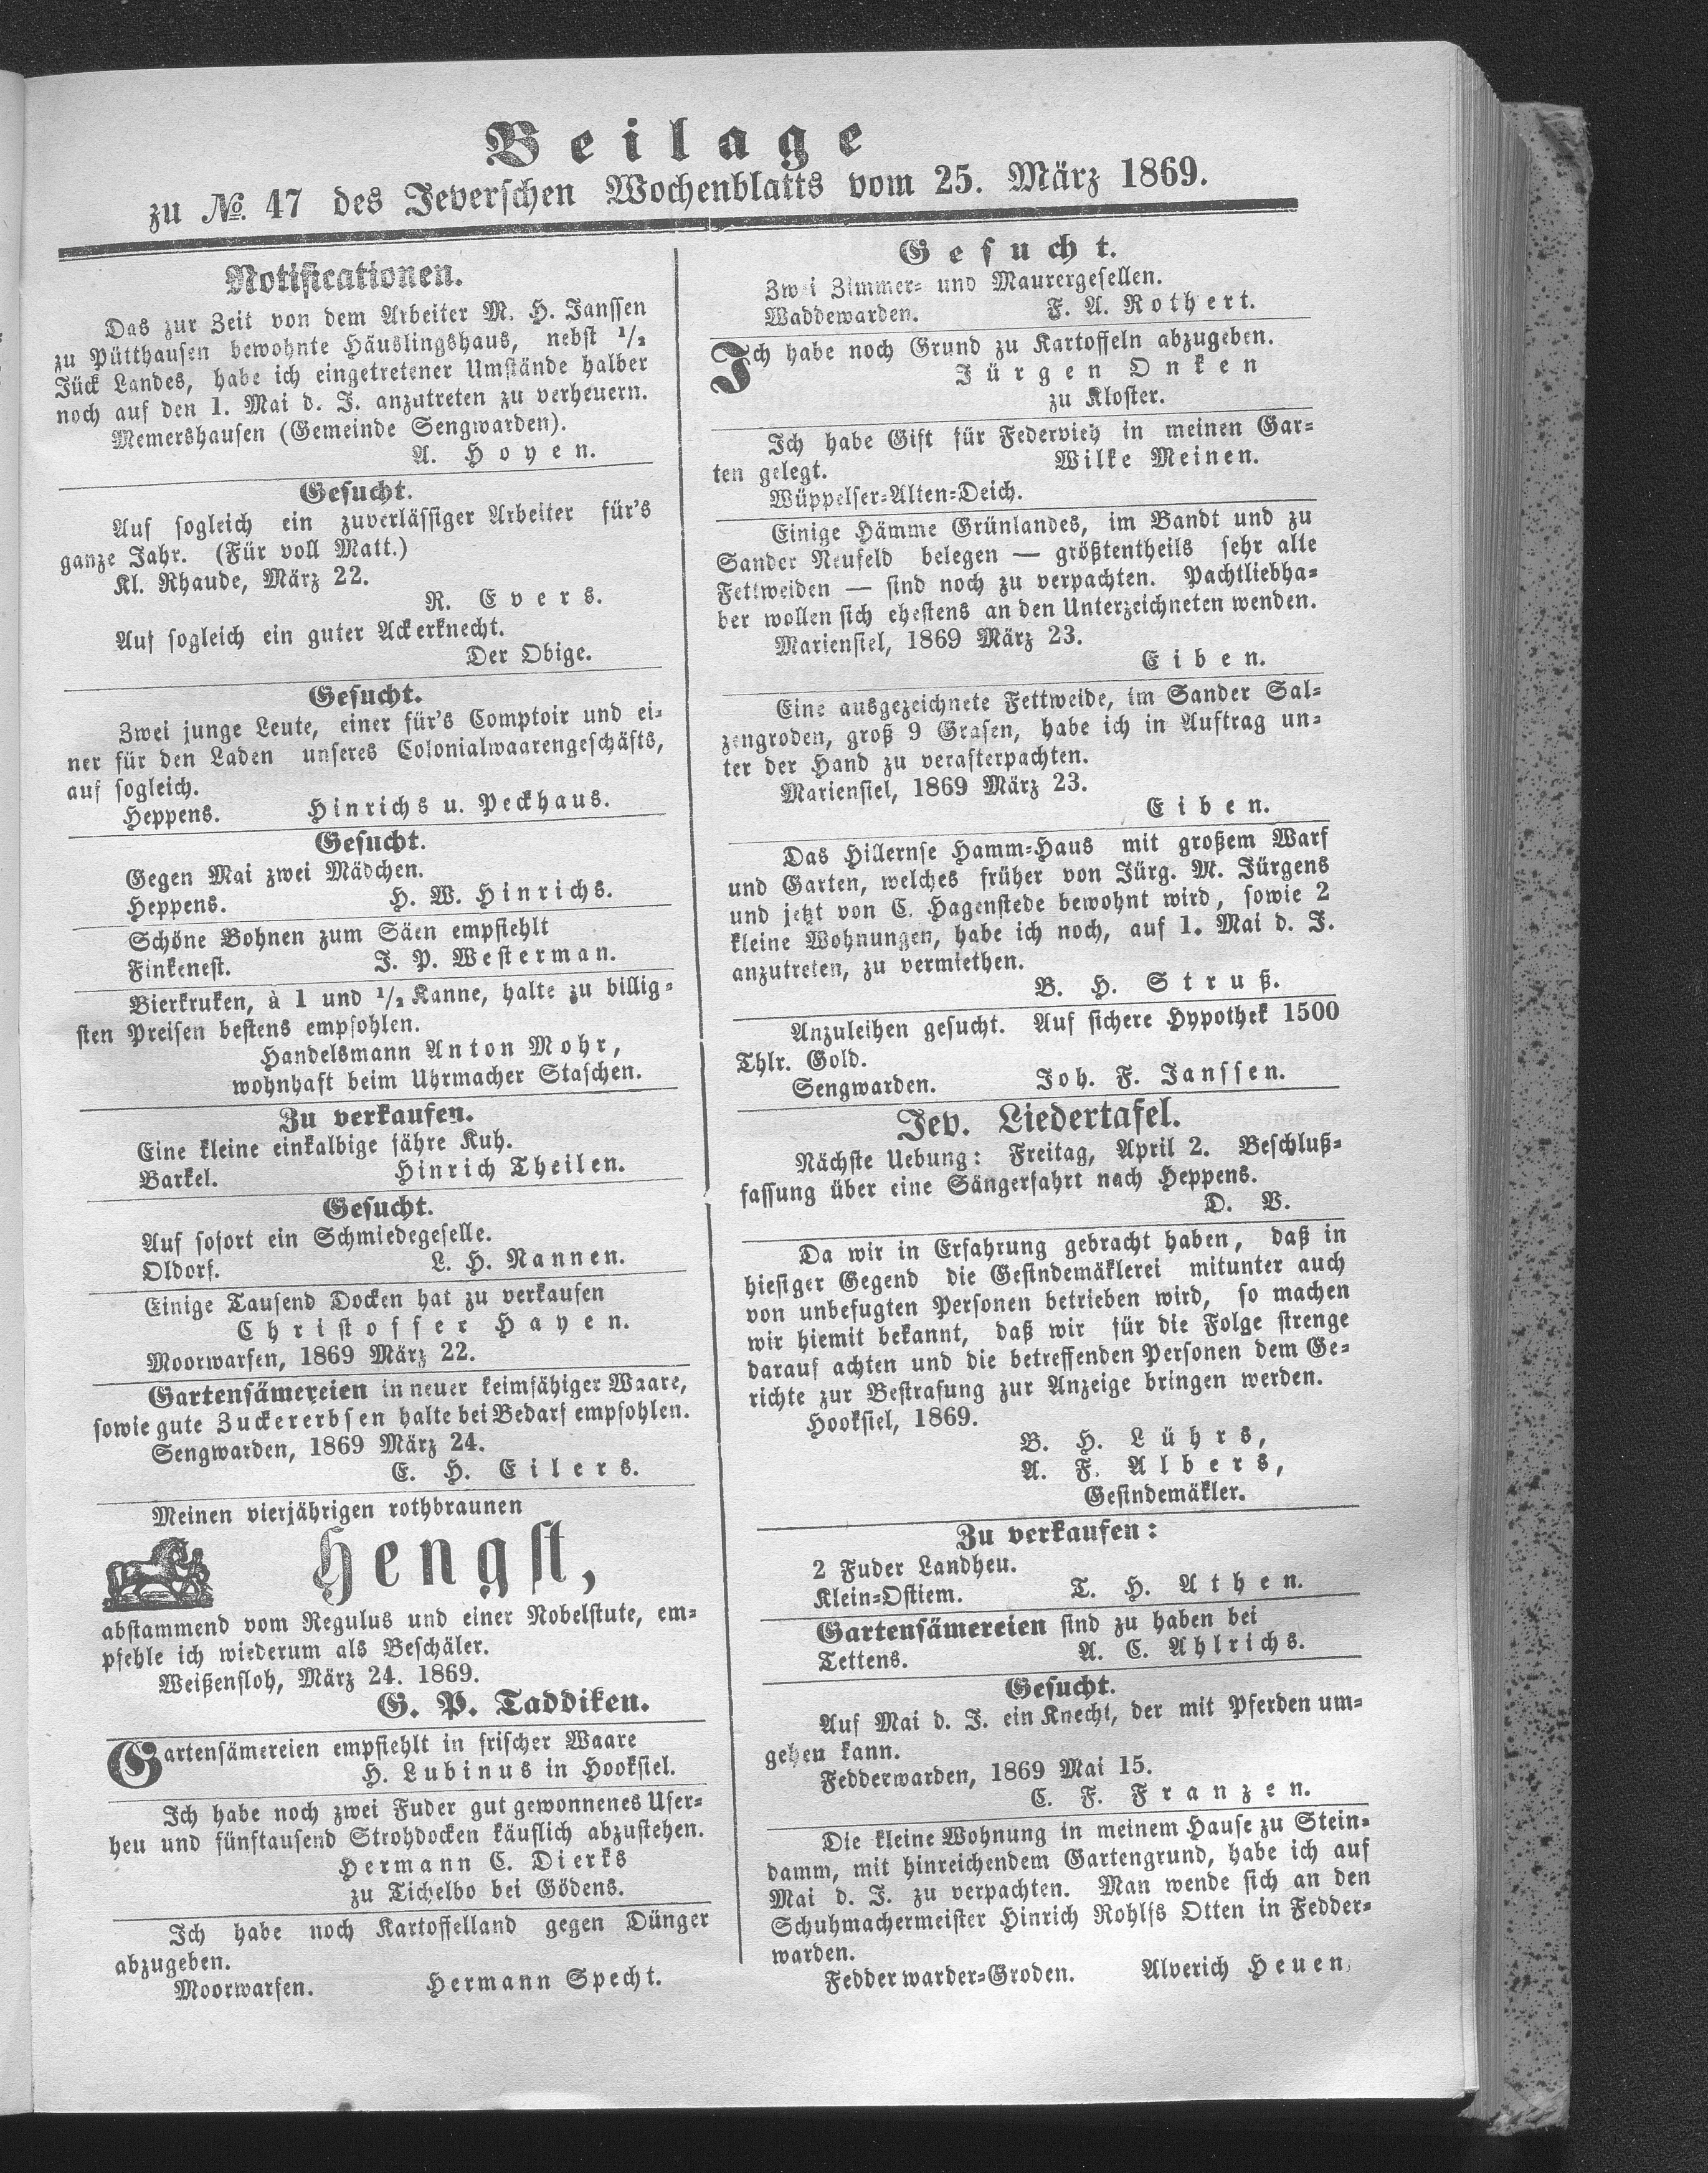 Beilage
zu No. 47 des Jeverschen Wochenblatts vom 25. März 1869.
Notificationen.
Das zur Zeit von dem Arbeiter M. H. Janssen
zu Pütthausen bewohnte Häuslingshaus, nebst 1/2
Jück Landes, habe ich eingetretener Umstände halber
noch auf den 1. Mai d. J. anzutreten zu verheuern.
Memershausen (Gemeinde Sengwarden).
A. Hoyen.
Gesucht.
Auf sogleich ein zuverlässiger Arbeiter für's
ganze Jahr. (Für voll Matt.)
Kl. Rhaude, März 22.
R. Evers.
Auf sogleich ein guter Ackerknecht.
Der Obige.
Gesucht.
Zwei junge Leute, einer für's Comptoir und ei-
ner für den Laden unseres Colonialwaarengeschäfts,
auf sogleich.
Heppens. Hinrichs u. Peckhaus.
Gesucht.
Gegen Mai zwei Mädchen.
Heppens. H. W. Hinrichs.
Schöne Bohnen zum Säen empfiehlt
Finkenest. J. P. Westerman.
Bierkruken, à 1 und 1/2 Kanne, halte zu billig-
sten Preisen bestens empfohlen.
Handelsmann Anton Mohr,
wohnhaft beim Uhrmacher Staschen.
Zu verkaufen.
Eine kleine einkalbige fähre Kuh.
Barkel. Hinrich Theilen.
Gesucht.
Auf sofort ein Schmiedegeselle.
Oldorf. L. H. Nannen.
Einige Tausend Docken hat zu verkaufen
Christoffer Hayen.
Moorwarfen, 1869 März 22.
Gartensämereien in neuer keimfähiger Waare,
sowie gute Zuckererbsen halte bei Bedarf empfohlen.
Sengwarden, 1869 März 24.
E. H. Eilers.
Meinen vierjährigen rothbraunen
Hengst,
abstammend vom Regulus und einer Nobelstute, em-
pfehle ich wiederum als Beschäler.
Weißenfloh, März 24. 1869.
G. P. Taddiken.
Gartensämereien empfiehlt in frischer Waare
H. Lubinus in Hooksiel.
Ich habe noch zwei Fuder gut gewonnenes Ufer-
heu und fünftausend Strohdocken käuflich abzustehen.
Hermann C. Dierks
zu Tichelbo bei Gödens.
Ich habe noch Kartoffelland gegen Dünger
abzugeben.
Moorwarfen. Hermann Specht.
Gesucht.
Zwei Zimmer- und Maurergesellen.
Waddewarden. F. A. Rothert.
Ich habe noch Grund zu Kartoffeln abzugeben.
Jürgen Onken
zu Kloster.
Ich habe Gift für Federvieh in meinen Gar-
ten gelegt. Wilke Meinen.
Wüppelser-Alten-Deich.
Einige Hämme Grünlandes, im Bandt und zu
Sander Neufeld belegen — größtentheils sehr alte
Fettweiden — sind noch zu verpachten. Pachtliebha-
ber wollen sich ehestens an den Unterzeichneten wenden.
Mariensiel, 1869 März 23.
Eiben.
Eine ausgezeichnete Fettweide, im Sander Sal-
zengroden, groß 9 Grasen, habe ich in Auftrag un-
ter der Hand zu verafterpachten.
Mariensiel, 1869 März 23.
Eiben.
Das Hillernse Hamm-Haus mit großem Warf
und Garten, welches früher von Jürg. M. Jürgens
und jetzt von C. Hagenstede bewohnt wird, sowie 2
kleine Wohnungen, habe ich noch, auf 1. Mai d. J.
anzutreten, zu vermiethen.
B. H. Struß.
Anzuleihen gesucht. Auf sichere Hypothek 1500
Thlr. Gold.
Sengwarden. Joh. F. Janssen.
Jev. Liedertafel.
Nächste Uebung: Freitag, April 2. Beschluß-
fassung über eine Sängerfahrt nach Heppens.
D. V.
Da wir in Erfahrung gebracht haben, daß in
hiesiger Gegend die Gesindemäklerei mitunter auch
von unbefugten Personen betrieben wird, so machen
wir hiemit bekannt, daß wir für die Folge strenge
darauf achten und die betreffenden Personen dem Ge-
richte zur Bestrafung zur Anzeige bringen werden.
Hooksiel, 1869.
B. H. Lührs,
A. F. Albers,
Gesindemäkler.
Zu verkaufen:
2 Fuder Landheu.
Klein-Ostiem. T. H. Athen.
Gartensämereien sind zu haben bei
Tettens. A. C. Ahlrichs.
Gesucht.
Auf Mai d. J. ein Knecht, der mit Pferden um-
gehen kann.
Fedderwarden, 1869 Mai 15.
C. F. Franzen.
Die kleine Wohnung in meinem Hause zu Stein-
damm, mit hinreichendem Gartengrund, habe ich auf
Mai d. J. zu verpachten. Man wende sich an den
Schuhmachermeister Hinrich Rohlfs Otten in Fedder-
warden.
Fedderwarder-Groden. Alverich Heuen.